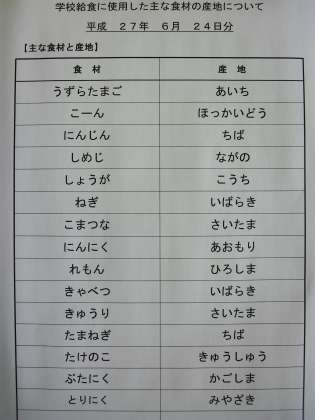 学校給食に使用した主な食材の産地について
平成　２７年　６月　２４日分
【主な食材と産地】
食　材　産　地
うずらたまご　あいち
こーん　ほっかいどう
にんじん　ちば
しめじ　ながの
しょうが　こうち
ねぎ　いばらき
こまつな　さいたま
にんにく　あおもり
れもん　ひろしま
きゃべつ　いばらき
きゅうり　さいたま
たまねぎ　ちば
たけのこ　きゅうしゅう
ぶたにく　かごしま
とりにく　みやざき